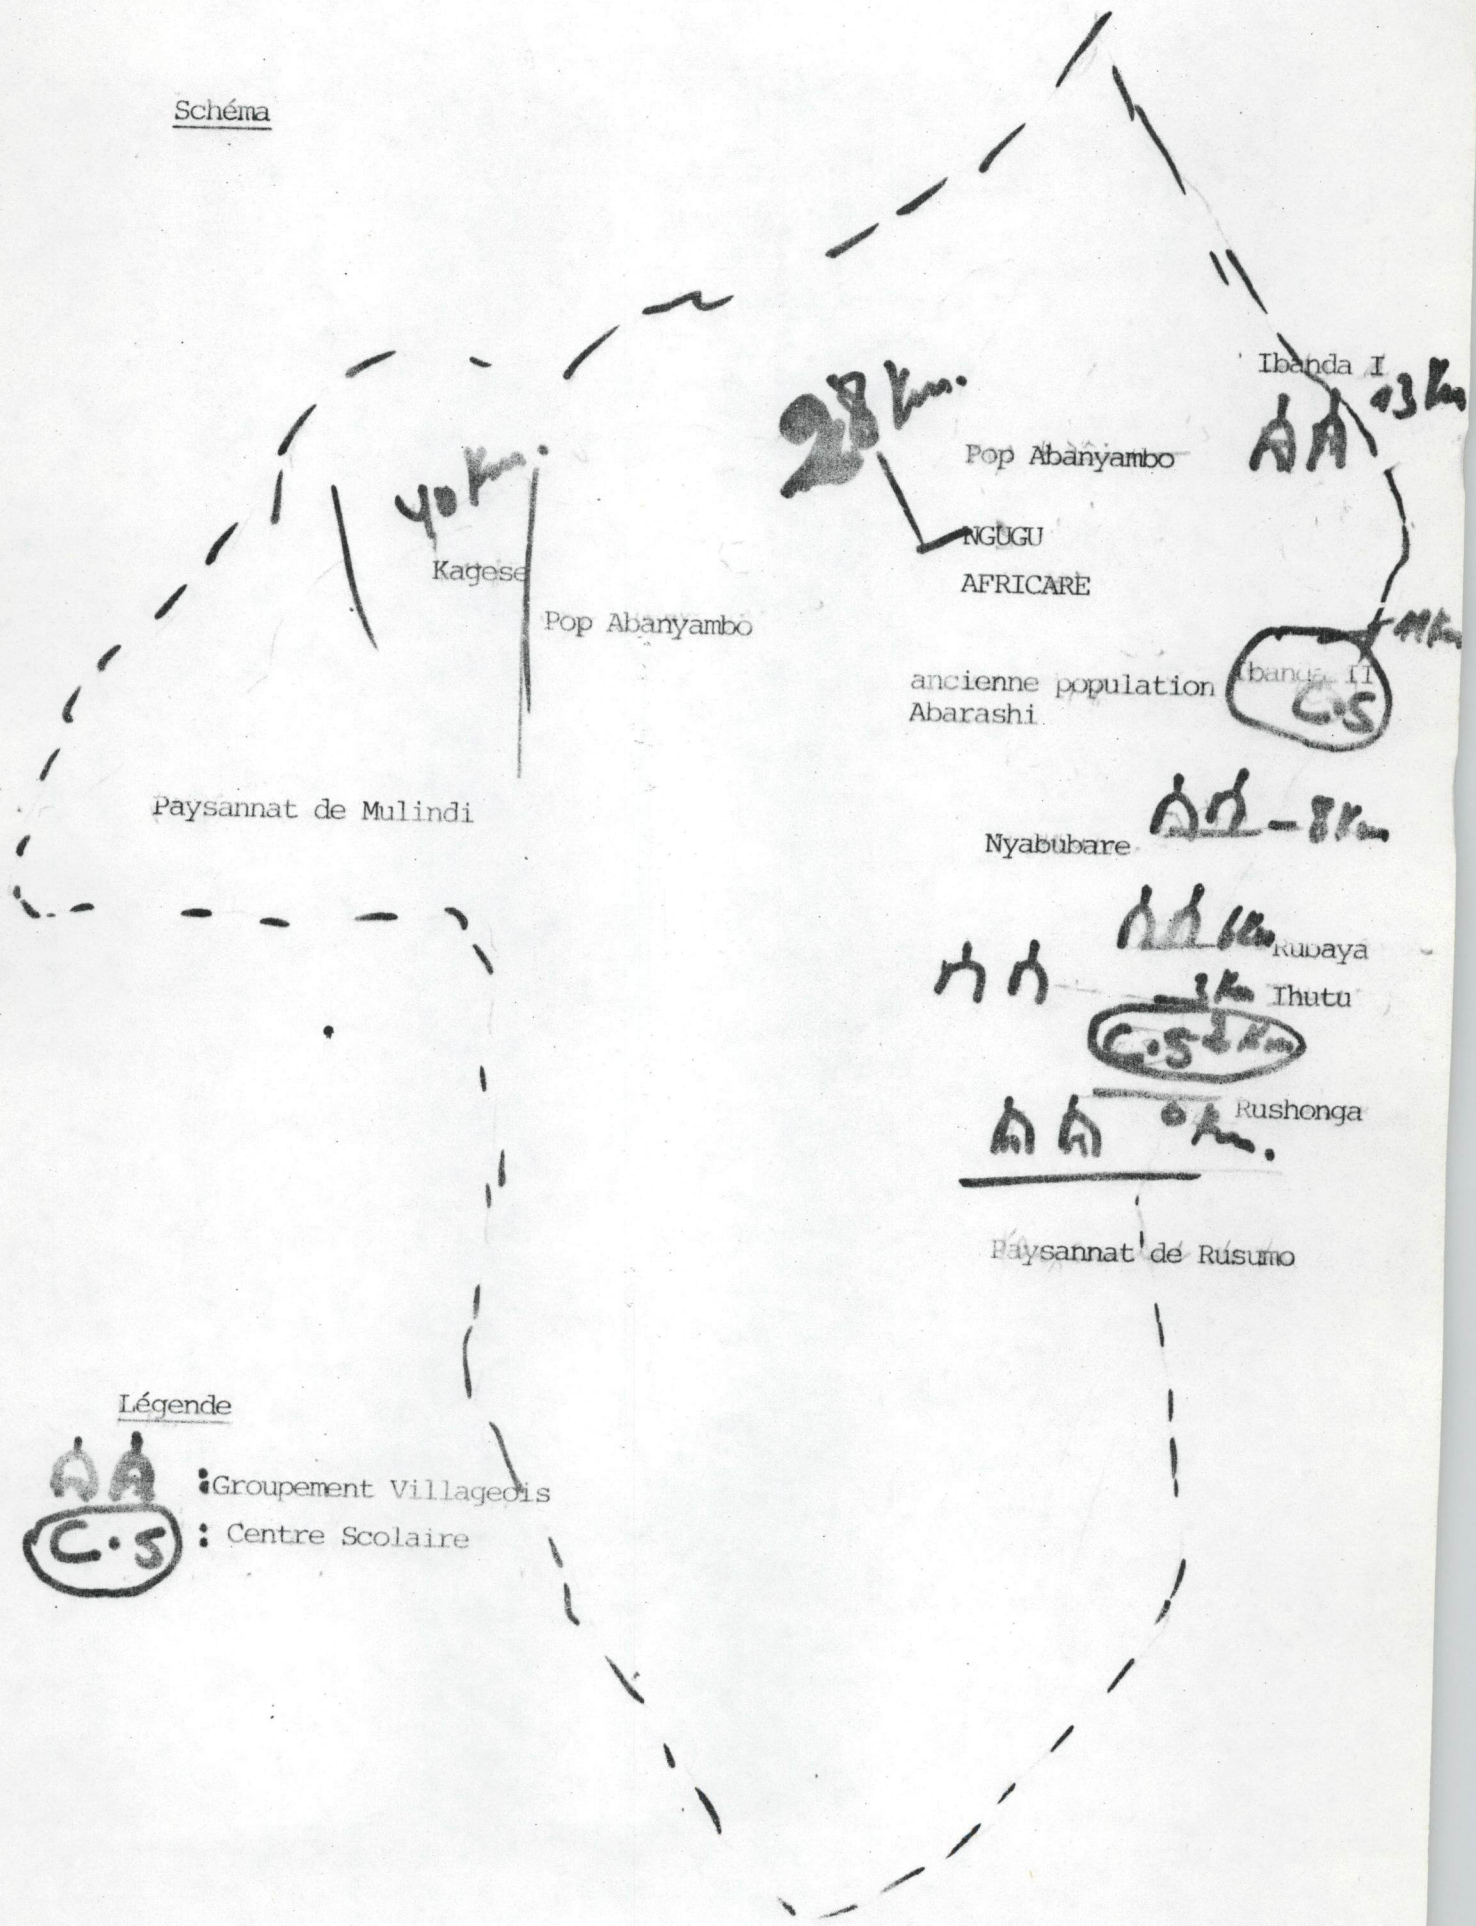 Schéma
Ibanda I
13 Km
28 Km.
Pop Abanyambo
40 Km.
NGUGU
Kagese
AFRICARE
Pop Abanyambo
11 Km
ancienne population
Abarashi
Ibanda II
C.S
Paysannat de Mulindi
Nyabubare
- 8 Km
6 Km
Rubaya
3 Km
Ihutu
C.S
Km
Rushonga
0 Km.
Paysannat de Rusumo
Légende
: Groupement Villageois
C.S : Centre Scolaire